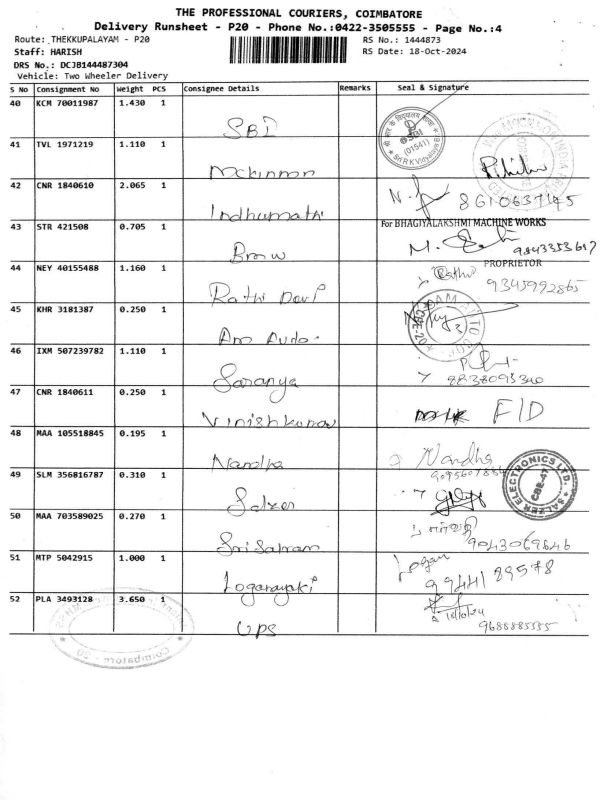 THE PROFESSIONAL COURIERS, COIMBATORE
Delivery Runsheet - P20 - Phone No.:0422-3505555 - Page No.:4
Route: THEKKUPALAYAM - P20
RS No.: 1444873
Staff: HARISH
RS Date: 18-Oct-2024
DRS No.: DCJB144487304
Vehicle: Two Wheeler Delivery
S No Consignment No Weight PCS Consignee Details Remarks Seal & Signature
40 KCM 70011987 1.430 1 SBI
(01541)
Sri R K Vidyalaya
41 TVL 1971219 1.110 1 Mckinnon
42 CNR 1840610 2.065 1 Indhumathi 8610637145
43 STR 421508 0.705 1
For BHAGIYALAKSHMI MACHINE WORKS
9843353617
PROPRIETOR
44 NEY 40155488 1.160 1 Rathi Devi Rathi 9345992865
45 KHR 3181387 0.250 1
46 IXM 507239782 1.110 1 Saranya
47 CNR 1840611 0.250 1 Vinishkumar F/D
48 MAA 105518845 0.195 1 Nandha Nandha
49 SLM 356816787 0.310 1 Salzer
SALZER ELECTRONICS LTD.
CBE-47
50 MAA 703589025 0.270 1 Sri Sairam 9043069846
51 MTP 5042915 1.000 1 Loganayaki Logan 9944189578
52 PLA 3493128 3.650 1 UPS 9688885555
Coimbatore - 20